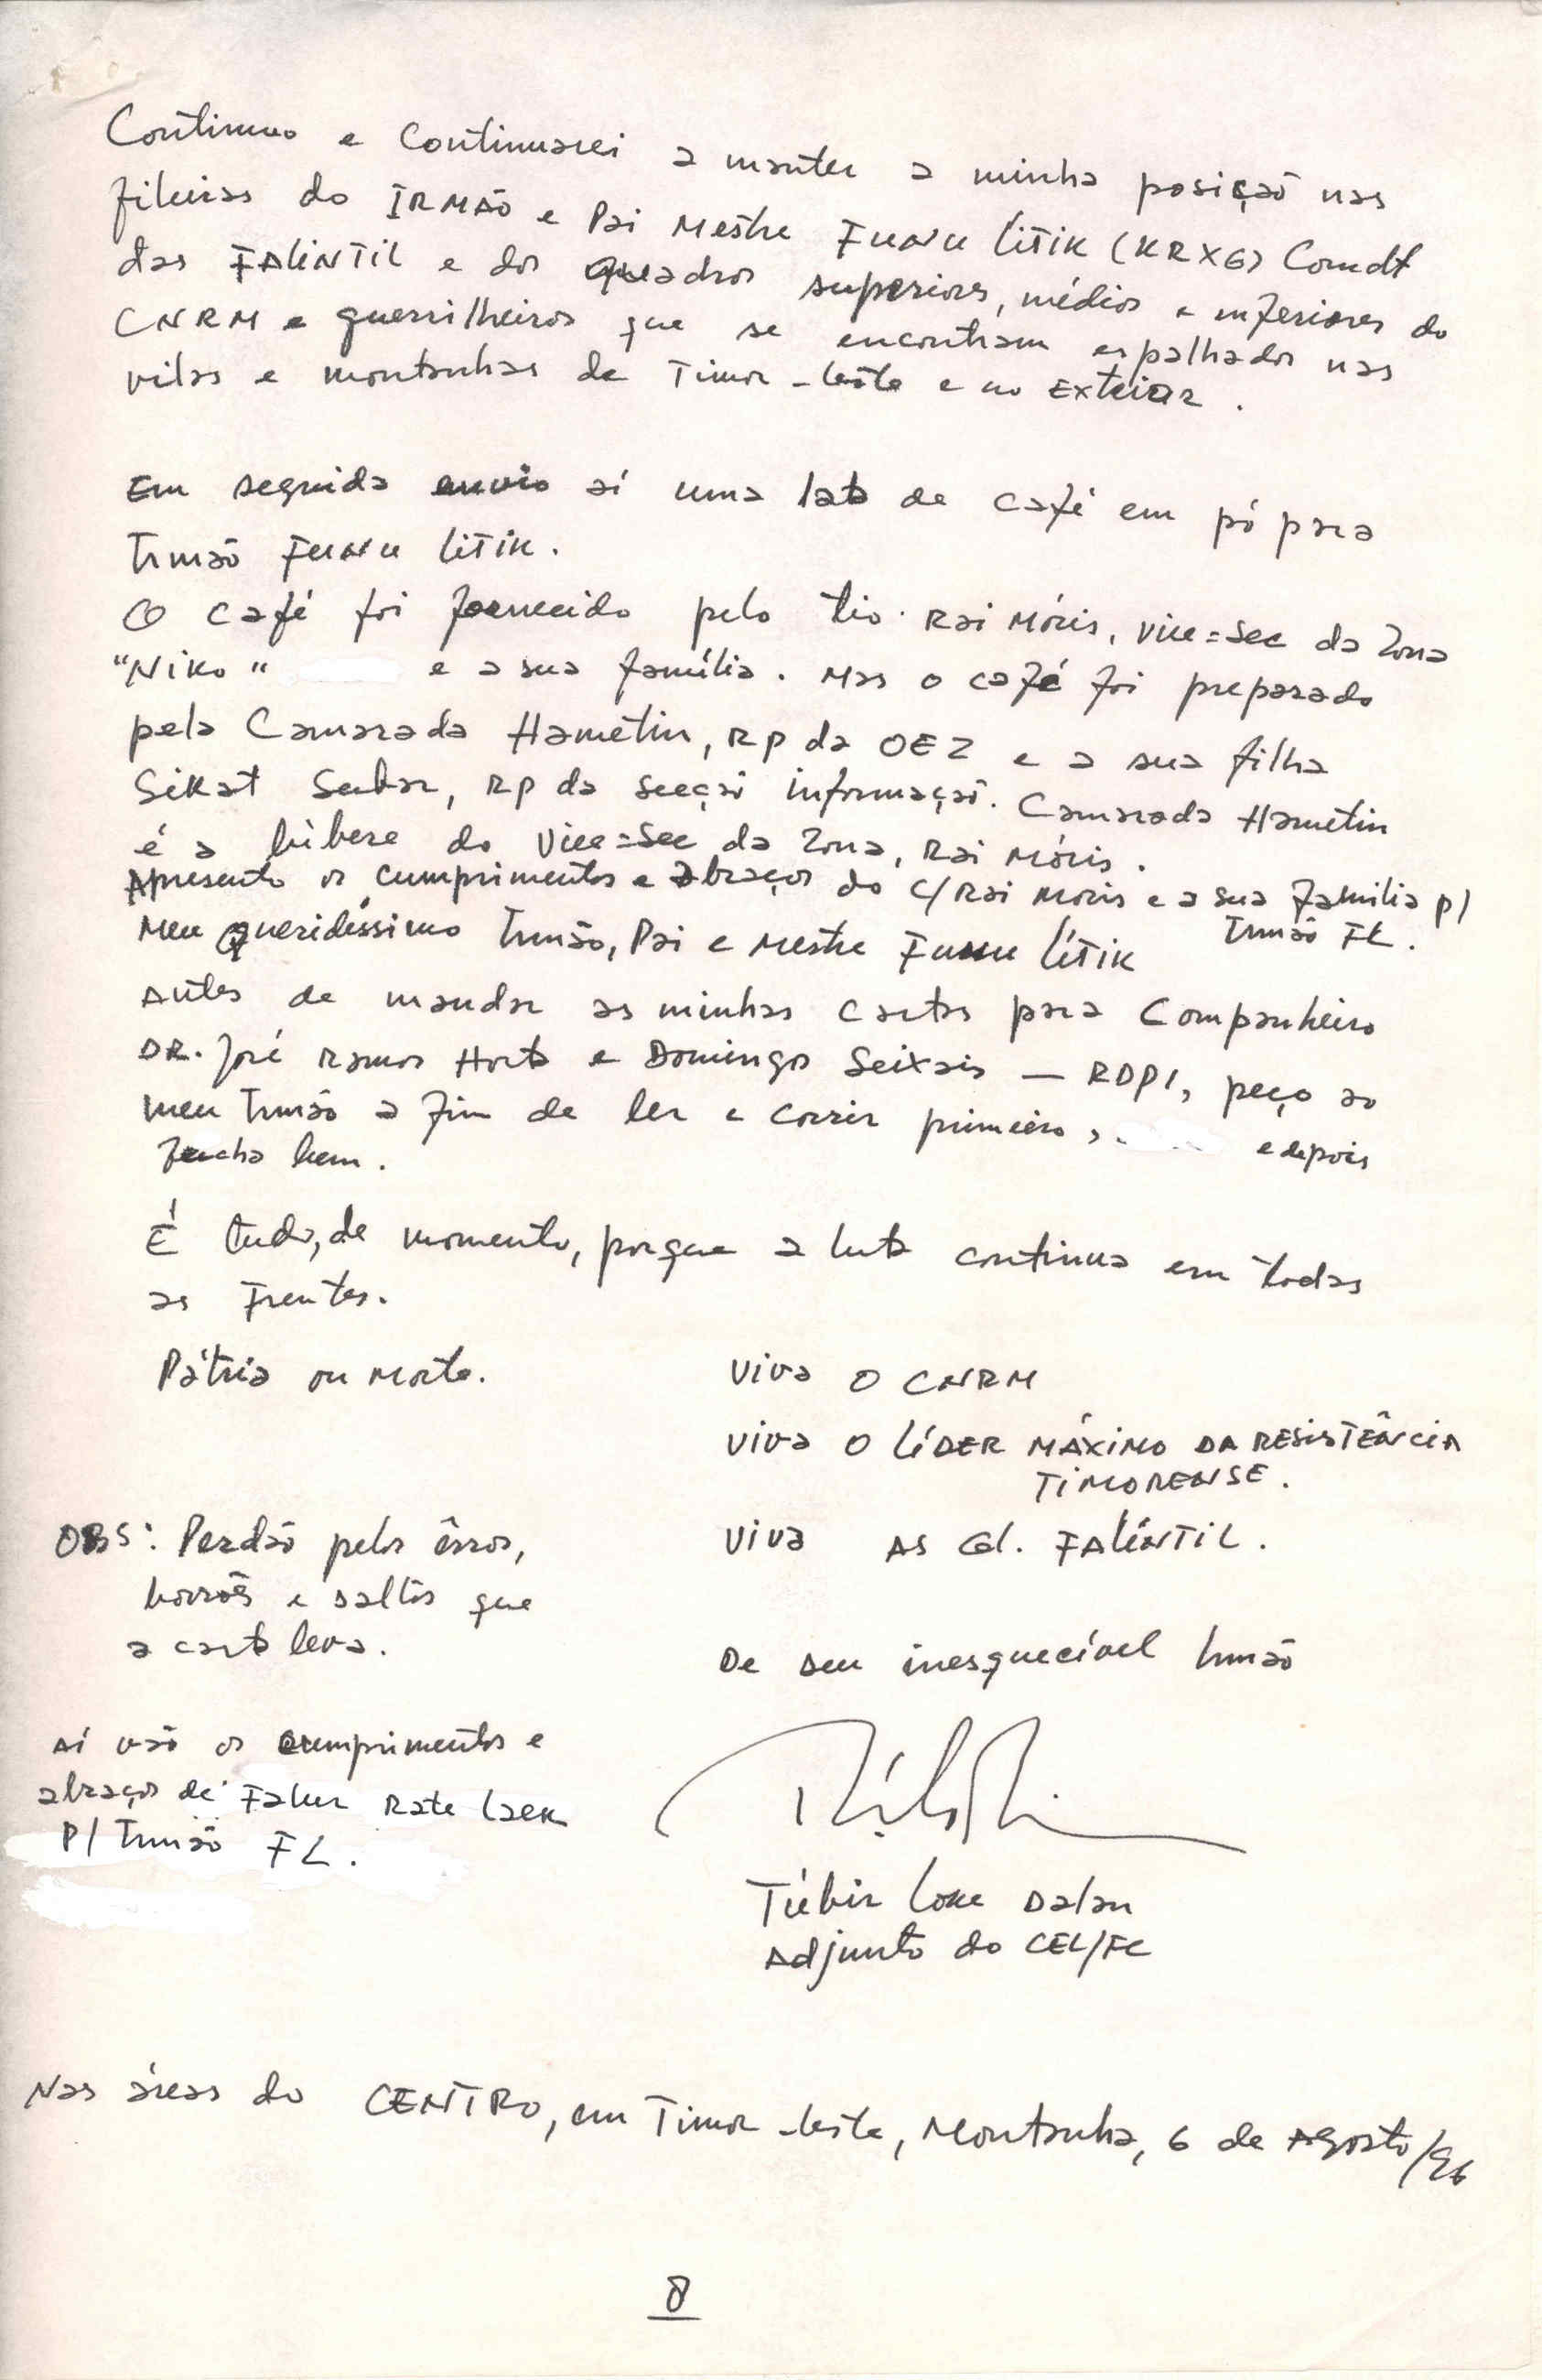 Continuo e Continuarei a manter a minha posição nas
fileiras do IRMÃO e Pai Mestre FUNU LITIK (KRXG) Comdt
das FALINTIL e dos Quadros superiores, médios e inferiores do
CNRM e guerrilheiros que se encontram espalhados nas
vilas e montanhas de Timor-Leste e no Exterior.
Em seguida envio aí uma lata de café em pó para
Irmão FUNU LITIK.
O café foi fornecido pelo tio Rai Móris, Vice=Sec da Zona
"Niko" e a sua família. Mas o café foi preparado
pela Camarada Hametin, RP da OEZ e a sua filha
Sikat Subar, RP da Secção informação. Camarada Hametin
é a bibere do Vice=Sec da Zona, Rai Móris.
Apresento os cumprimentos e abraços do C/Rai Moris e a sua família p/
Irmão FL.
Meu queridíssimo Irmão, Pai e Mestre FUNU LITIK
Antes de mandar as minhas cartas para Companheiro
DR. José Ramos Horta e Domingos Seixais — RDP1, peço ao
meu Irmão a fim de ler e corrir primeiro, e depois
fecha bem.
É tudo, de momento, porque a luta continua em todas
as Frentes.
Pátria ou Morte.
Viva O CNRM
Viva O LÍDER MÁXIMO DA RESISTÊNCIA
TIMORENSE.
Viva AS Gl. FALINTIL.
OBS: Perdão pelos êrros,
borrões e saltos que
a carta leva.
De seu inesquecível Irmão
Aí vão os cumprimentos e
abraços de Falur Rate Laek
P/ Irmão FL.
Tíebir Loke Dalan
Adjunto do CEL/FC
Nas áreas do CENTRO, em Timor-Leste, Montanha, 6 de Agosto/96
8